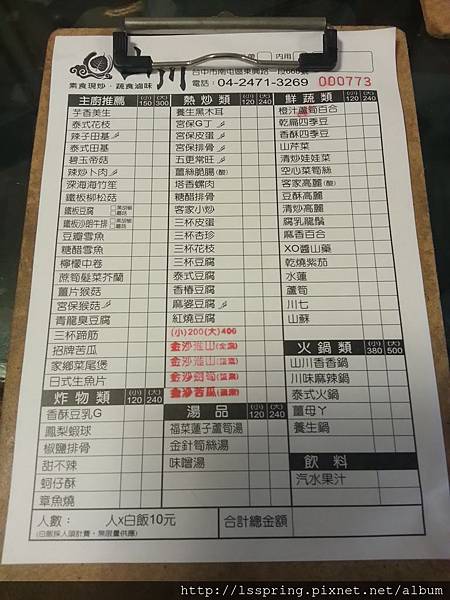 川
內用
素食現炒．蔬食滷味
台中市南屯區東興路一段
電話：04-2471-3269
000773
主廚推薦 (小)150 (大)300
芋香美生
泰式花枝
辣子田基
泰式田基
碧玉帝菇
辣炒卜肉
深海海竹笙
鐵板柳松菇
鐵板豆腐 黑胡椒 蘑菇
鐵板沙朗牛排 黑胡椒 蘑菇
豆瓣雪魚
糖醋雪魚
檸檬中卷
蔗筍髮菜芥蘭
薑片猴菇
宮保猴菇
青龍臭豆腐
三杯蹄筋
招牌苦瓜
家鄉菜尾煲
日式生魚片
炸物類 (小)120 (大)240
香酥豆乳G
鳳梨蝦球
椒鹽排骨
甜不辣
蚵仔酥
章魚燒
熱炒類 (小)120 (大)240
養生黑木耳
宮保G丁
宮保皮蛋
宮保排骨
五更常旺
薑絲脆腸(酸)
塔香螺肉
糖醋排骨
客家小炒
三杯皮蛋
三杯杏珍
三杯花枝
三杯豆腐
泰式豆腐
香椿豆腐
麻婆豆腐
紅燒豆腐
(小)200(大)400
金沙淮山
金沙淮山
金沙劍筍
金沙苦瓜
湯品 (小)120 (大)240
福菜蓮子蘆筍湯
金針筍絲湯
味噌湯
鮮蔬類 (小)120 (大)240
橙汁蘆筍百合
乾扁四季豆
香酥四季豆
山芹菜
清炒娃娃菜
空心菜筍絲
客家高麗(酸)
豆酥高麗
清炒高麗
腐乳龍鬚
麻香百合
XO醬山藥
乾燒紫茄
水蓮
蘆筍
川七
山蘇
火鍋類 (小)380 (大)500
山川香香鍋
川味麻辣鍋
泰式火鍋
薑母丫
養生鍋
飲料
汽水果汁
人數： 人x白飯10元
(白飯採人頭計費，無限量供應)
合計總金額
http://lsspring.pixnet.net/album